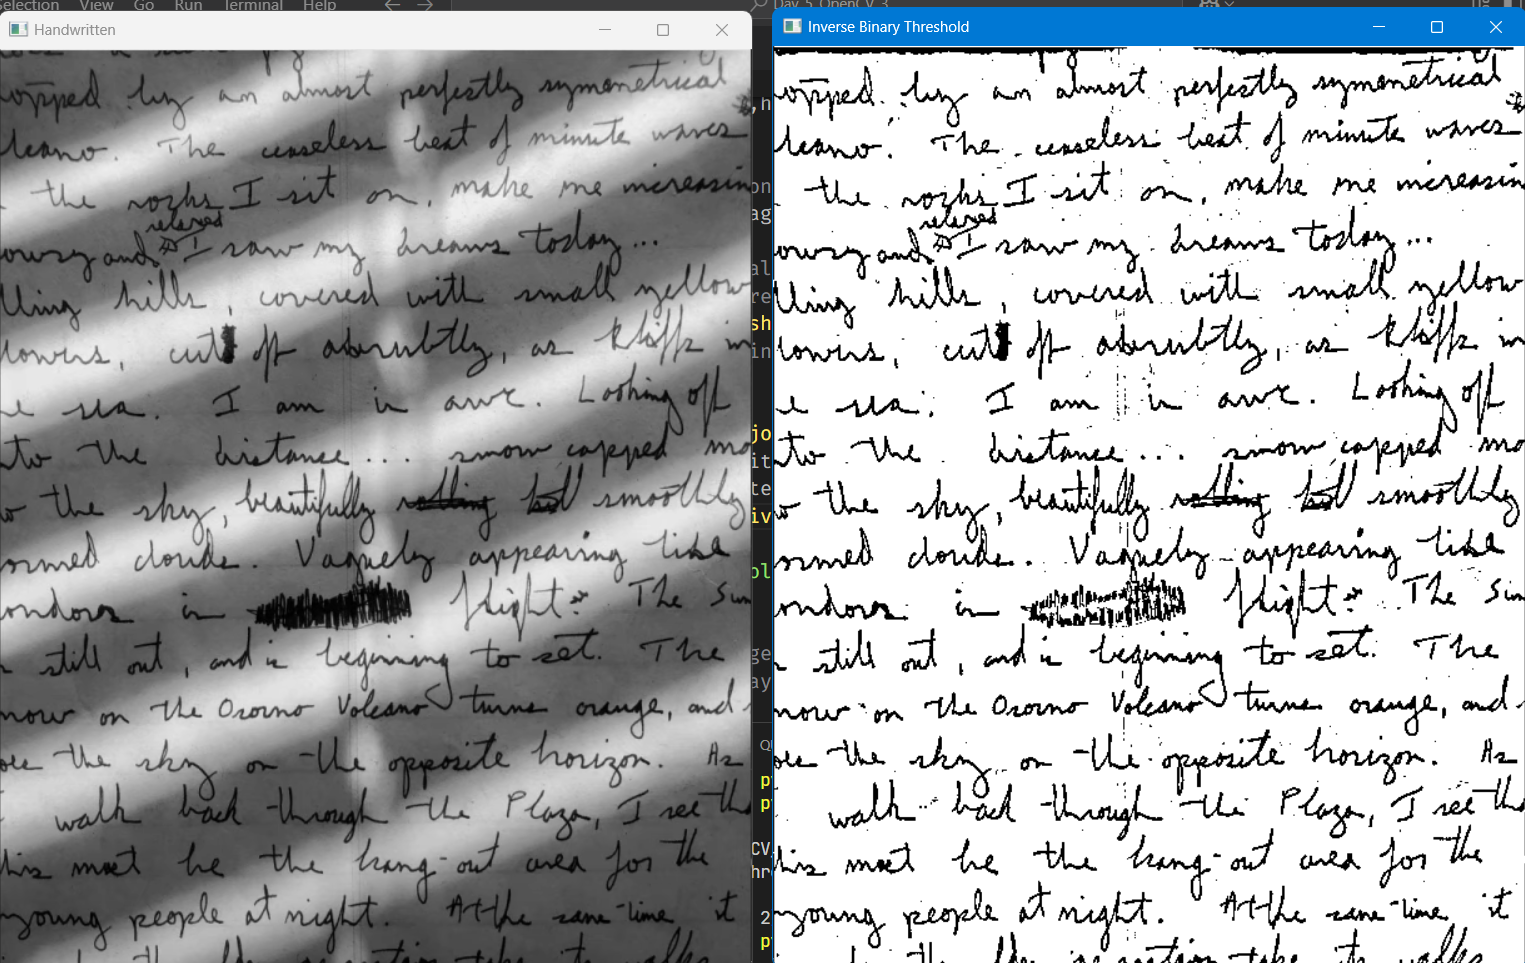 Selection View Go Run Terminal Help
Day 5 OpenCV 3
Handwritten
Inverse Binary Threshold
opped by an almost perfectly symmetrical
lcano. The ceaseless beat of minute waves
the rocks I sit on, make me increasin
relaxed
owsy and I saw my dreams today...
lling hills, covered with small yellow
lowers, cut off abrubtly, as kliffs in
e sea. I am in awe. Looking off
to the distance... snow capped mo
w the sky, beautifully rolling but smoothly
ormed clouds. Vaguely appearing like
ondors in flight. The Sun
still out, and is beginning to set. The
now on the Osorno Volcano turns orange, and
oes the sky on the opposite horizon. As
walk back through the Plaza, I see tha
his must be the hang-out area for the
young people at night. At the same time it
opped by an almost perfectly symmetrical
lcano. The ceaseless beat of minute waves
the rocks I sit on, make me increasin
relaxed
owsy and I saw my dreams today...
lling hills, covered with small yellow
lowers, cut off abrubtly, as kliffs in
e sea. I am in awe. Looking off
to the distance... snow capped mo
w the sky, beautifully rolling but smoothly
ormed clouds. Vaguely appearing like
ondors in flight. The Sun
still out, and is beginning to set. The
now on the Osorno Volcano turns orange, and
oes the sky on the opposite horizon. As
walk back through the Plaza, I see tha
his must be the hang-out area for the
young people at night. At the same time it